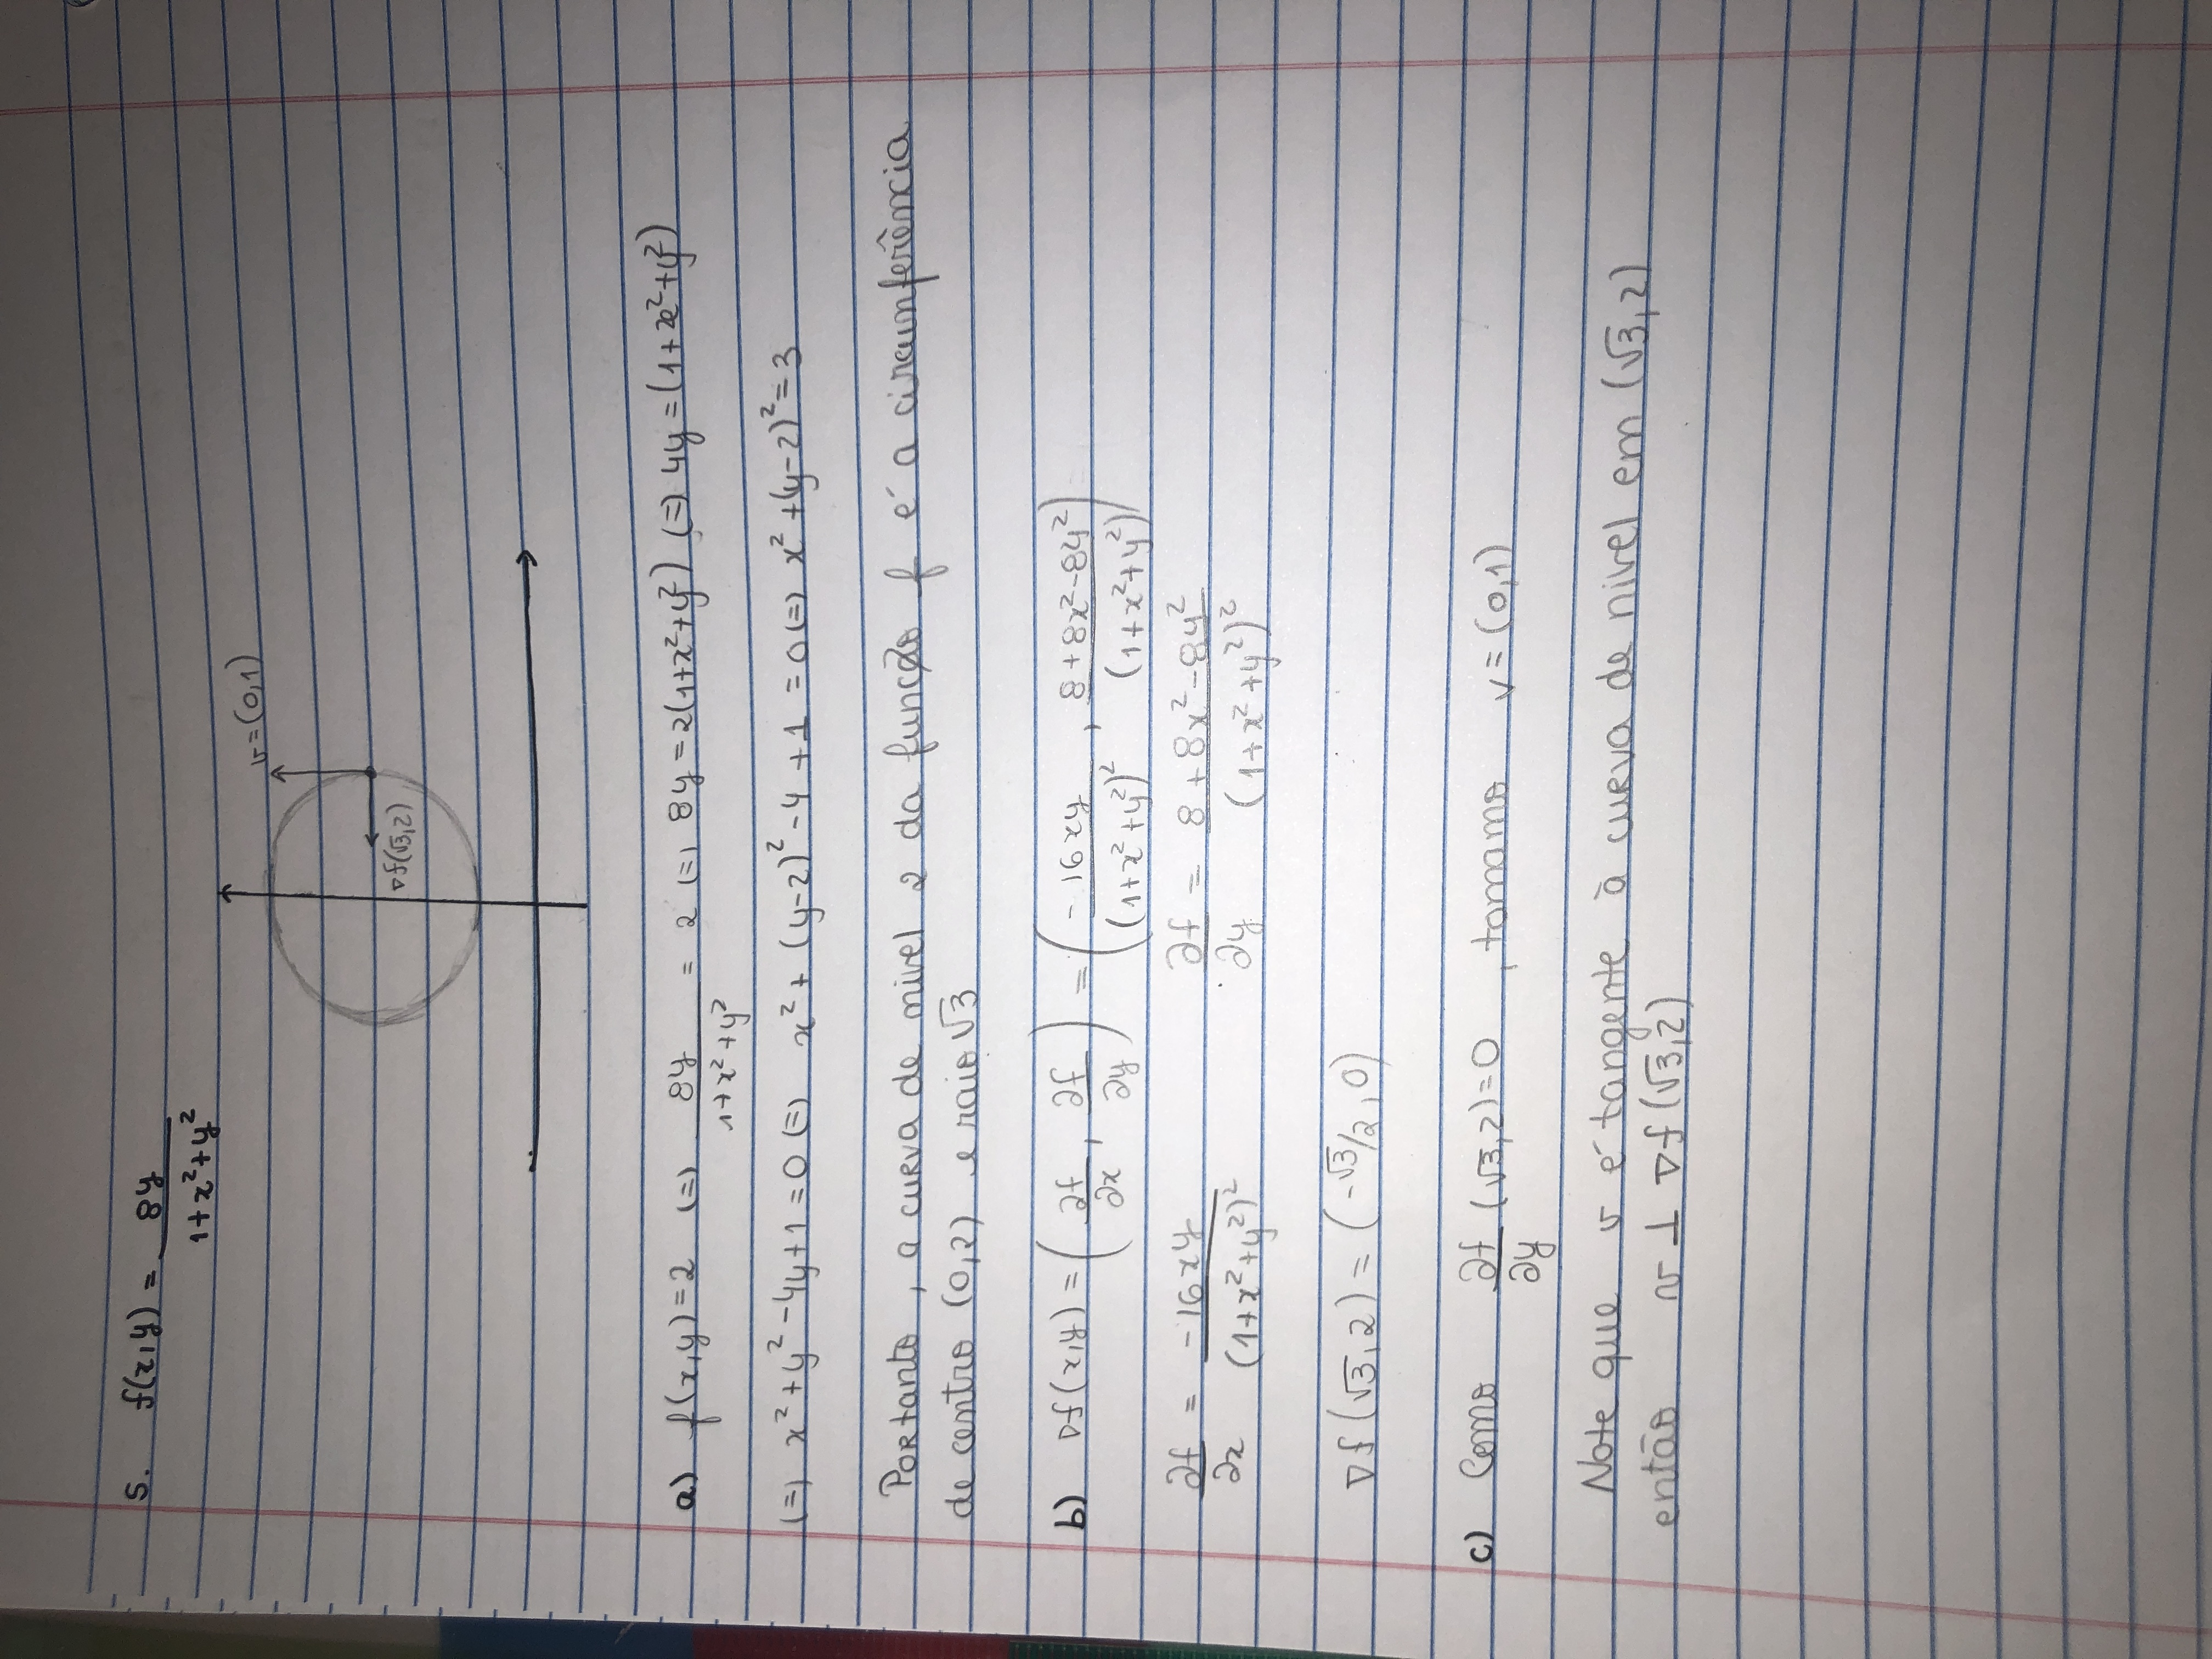 5. f(x,y) = 8y / 1+x²+y²
v=(0,1)
∇f(√3,2)
a) f(x,y)=2 (=) 8y / 1+x²+y² = 2 (=) 8y=2(1+x²+y²) (=) 4y=(1+x²+y²)
(=) x²+y²-4y+1=0 (=) x²+(y-2)²-4+1=0 (=) x²+(y-2)²=3
Portanto, a curva de nivel 2 da função f é a circunferência
de centro (0,2) e raio √3
b) ∇f(x,y) = (∂f/∂x, ∂f/∂y) = (-16xy / (1+x²+y²)², 8+8x²-8y² / (1+x²+y²))
∂f/∂x = -16xy / (1+x²+y²)² ∂f/∂y = 8+8x²-8y² / (1+x²+y²)²
∇f(√3,2) = (-√3/2, 0)
c) Como ∂f/∂y (√3,2)=0, tomamo v=(0,1)
Note que v é tangente à curva de nivel em (√3,2)
então v ⊥ ∇f(√3,2)